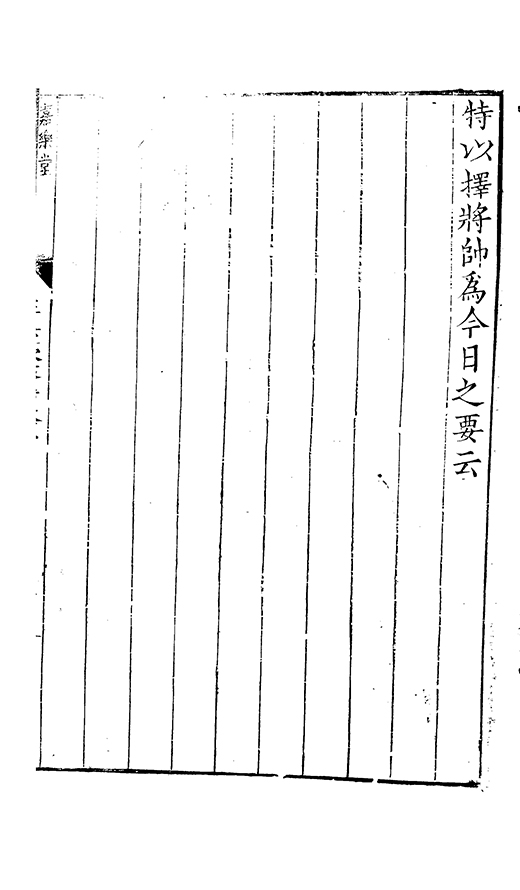 特以擇將帥為今日之要云
樂堂